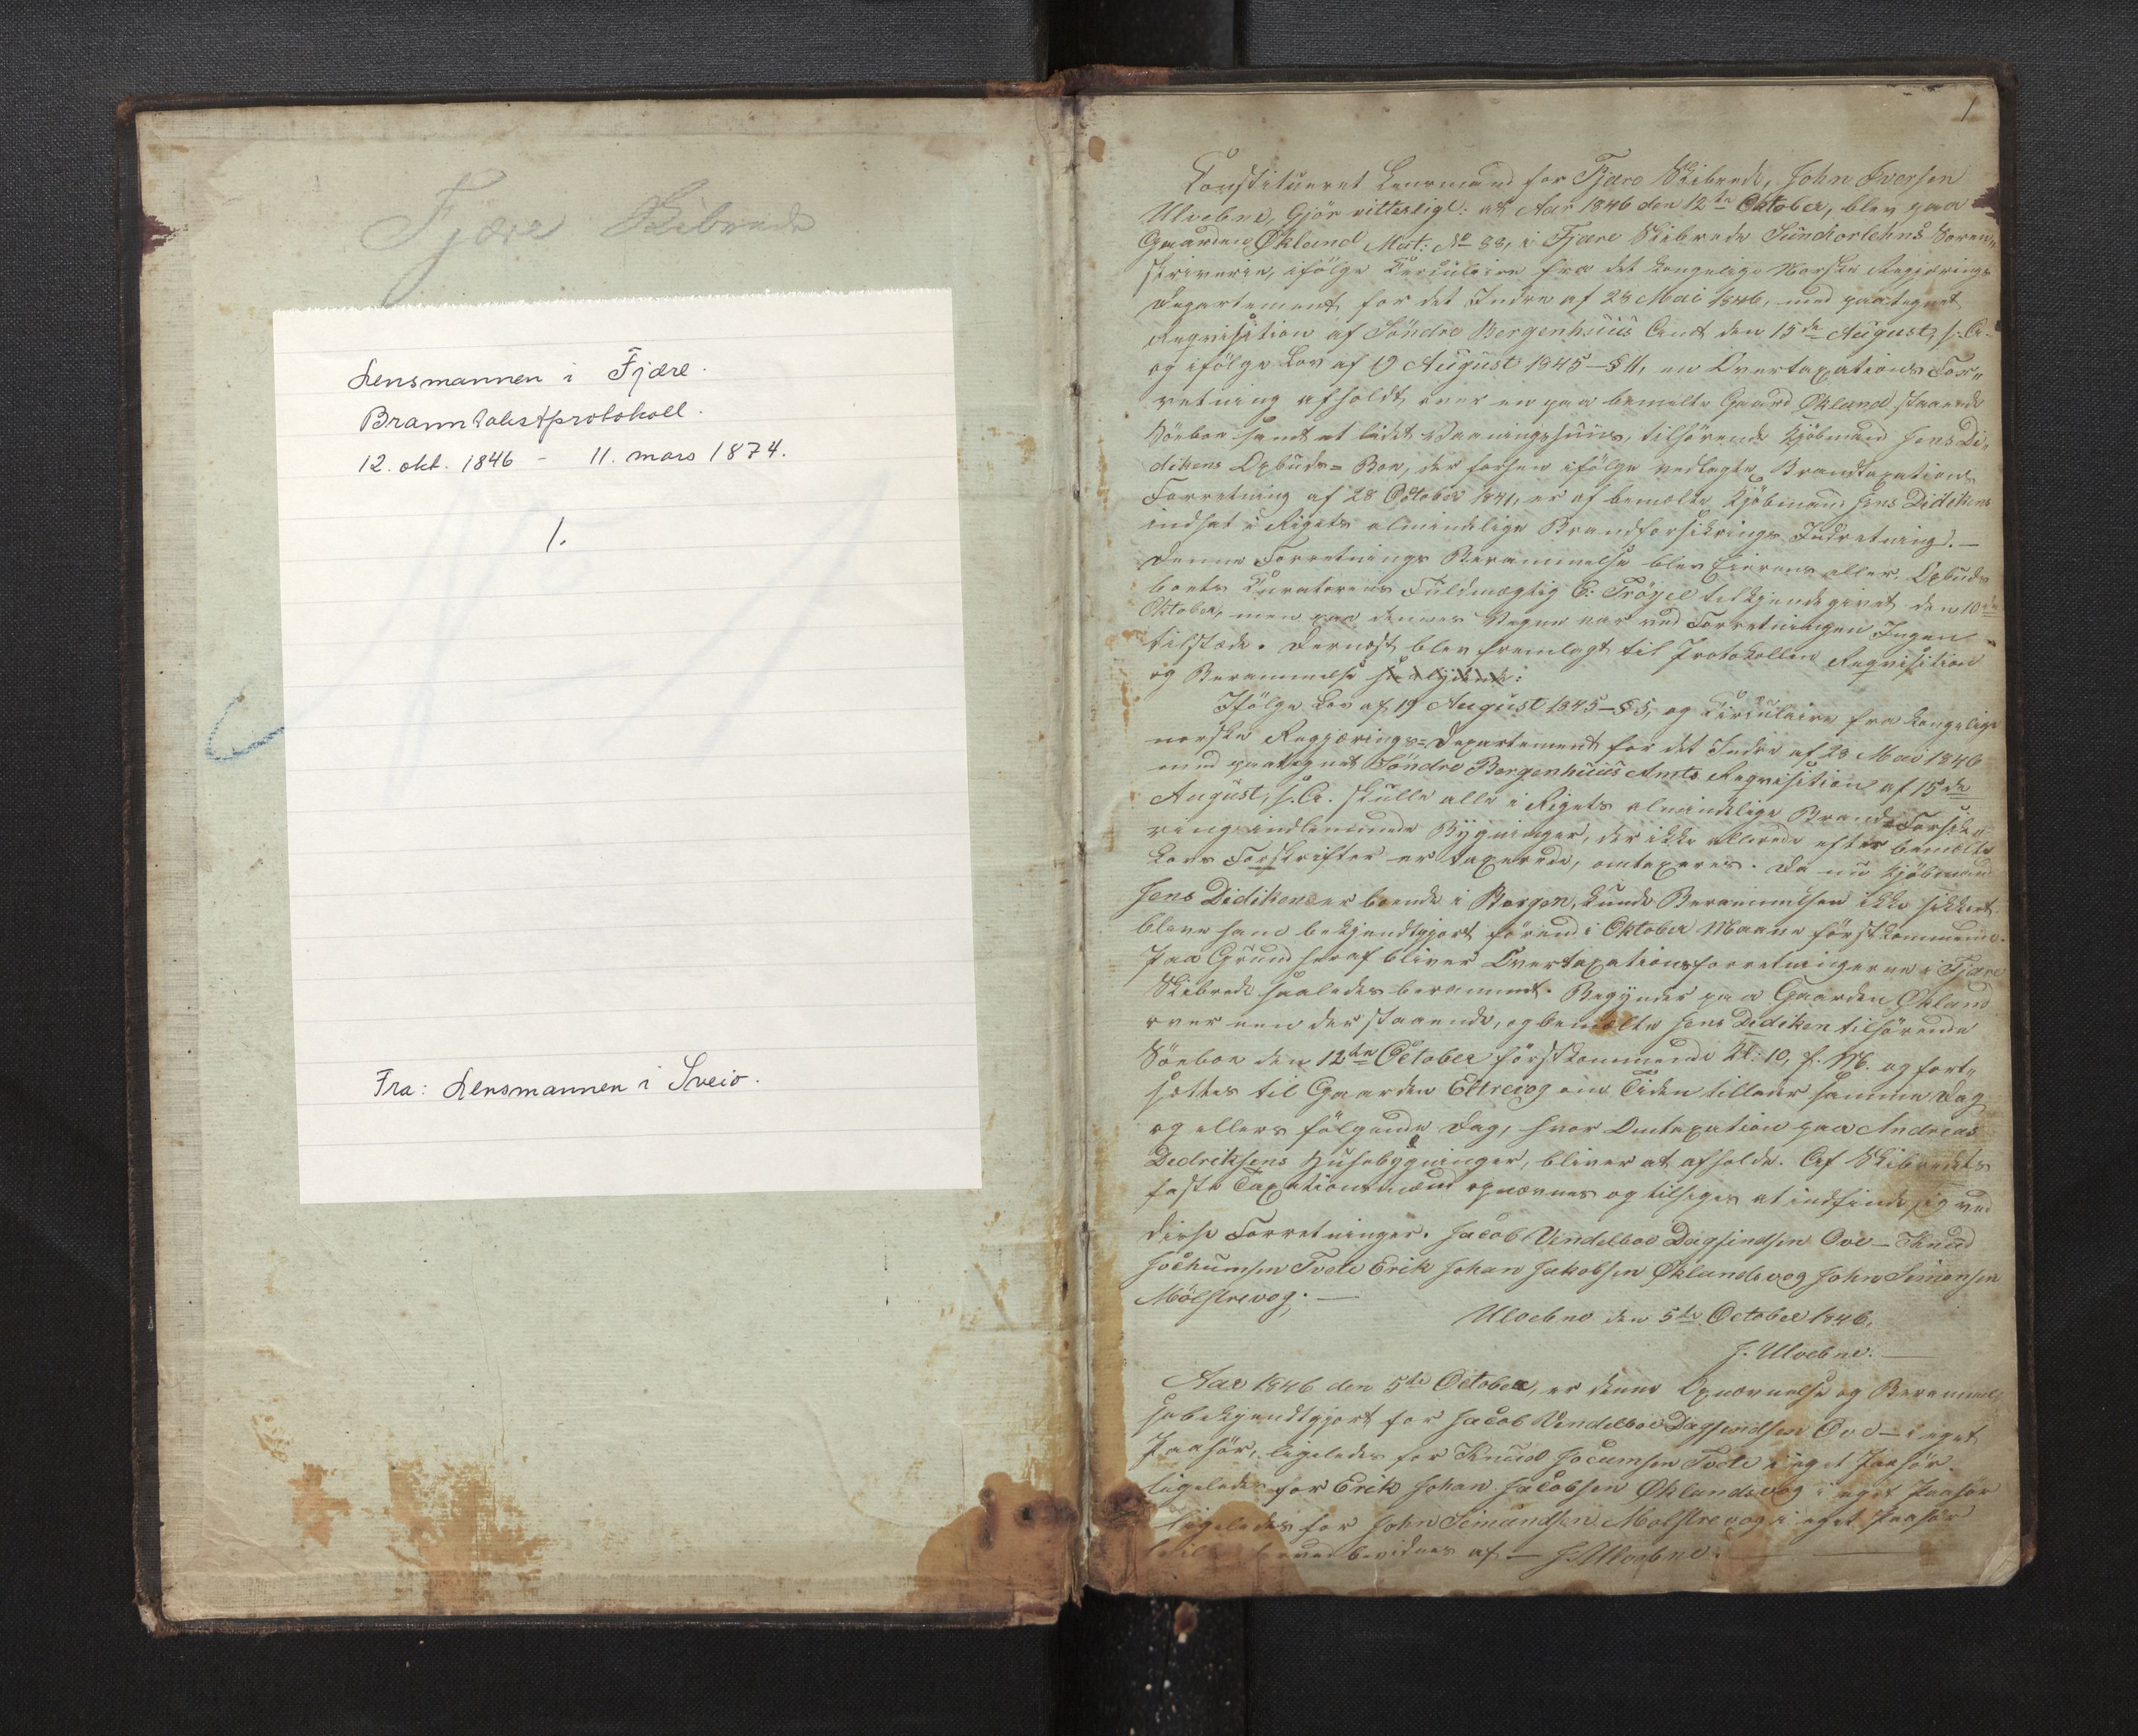 Fjære Skibrede
Lensmannen i Fjære.
Branntakstprotokoll.
12. okt. 1846 - 11. mars 1874.
1.
Fra: Lensmannen i Sveio.
1
Constitueret Lensmand for Fjære Skibrede, John Iversen
Ulvebne, Gjör vitterligt: at Aar 1846 den 12te Oktober, blev paa
Gaarden Økland Mat: No 88, i Fjære Skibrede Sundhorlehns Soren„
skriverie, ifölge Circulaire fra det kongelige Norske Regjerings
Departement for det Indre af 28 Mai 1846, med paategnet
Reqvisition af Söndre Bergenhuus Amt den 15de August, s. A.
og ifölge Lov af 19 August 1845 - § 11, en Overtaxations For„
retning afholdt over en paa bemelte Gaard Økland staaende
Söeboe samt et lidet Vaaningshuus, tilhörende Kjöbmand Jens Di„
dikens Opbuds= Boe, der forhen ifölge vedlagte Brandtaxations
Forretning af 28 October 1841, er af bemelte Kjöbmand Jens Didikens
indsat i Rigets almindelige Brandforsikrings Indretning. —
Denne Forretnings Berammelse blev Eierens eller Opbuds
boets Curatorens Fuldmægtig C: Tröyel tilkjendegivet den 10de
Oktober, men paa dennes Vegne var ved Forretningen Ingen
tilstæde. Dernæst blev fremlagt til Protokollen Reqvisition
og Berammelse saalydende:
Ifölge Lov af 19 August 1845 - § 5, og Circulaire fra kongelige
norske Regjerings= Departement for det Indre af 28 Mai 1846
med paategnet Söndre Bergenhuus Amts Reqvisition af 15de
August, s. A. skulle alle i Rigets almindelige Brand=Forsik„
ring indlemmede Bygninger, der ikke allerede efter bemelte
Lovs Forskrifter er taxerede, omtaxeres. Da nu Kjöbmand
Jens Didiken er boende i Bergen, kunde Berammelsen ikke sikkert
blive ham bekjendtgjort förend i Oktober Maane förstkommende.
Paa Grund heraf bliver Overtaxationsforretningerne i Fjære
Skibrede saaledes berammet. Begynder paa Gaarden Økland
over een der staaende, og bemelte Jens Didiken tilhörende
Söeboe den 12te October förstkommende Kl: 10, f. M. og fort„
settes til Gaarden Eltrevog om Tiden tillader samme Dag
og ellers fölgende Dag, hvor Omtaxation paa Andreas
Dedriksens Husebygninger, bliver at afholde. Af Skibredets
faste Taxationsmænd opnævnes og tilsiges at indfinde sig ved
disse Forretninger. Jacob Vendelboe Dagfindsen Ove — Knud
Jochumsen Tvete Erik Johan Jakobsen Øklandsvog John Simonsen
Mölstrevog. —
Ulvebne den 5te October 1846.
J. Ulvebne. —
Aar 1846 den 5te October, er denne Opnævnelse og Berammel
se bekjendtgjort for Jacob Vendelboe Dagfindsen Ove — i eget
Paahör, ligeledes for Knud Jocumsen Tvete i eget Paahör.
ligeledes for Erik Johan Jacobsen Øklandsvog i eget Paahör
ligeledes for John Simundsen Molstrevog i eget Paahör
herved bevidnes af — J. Ulvebne. —